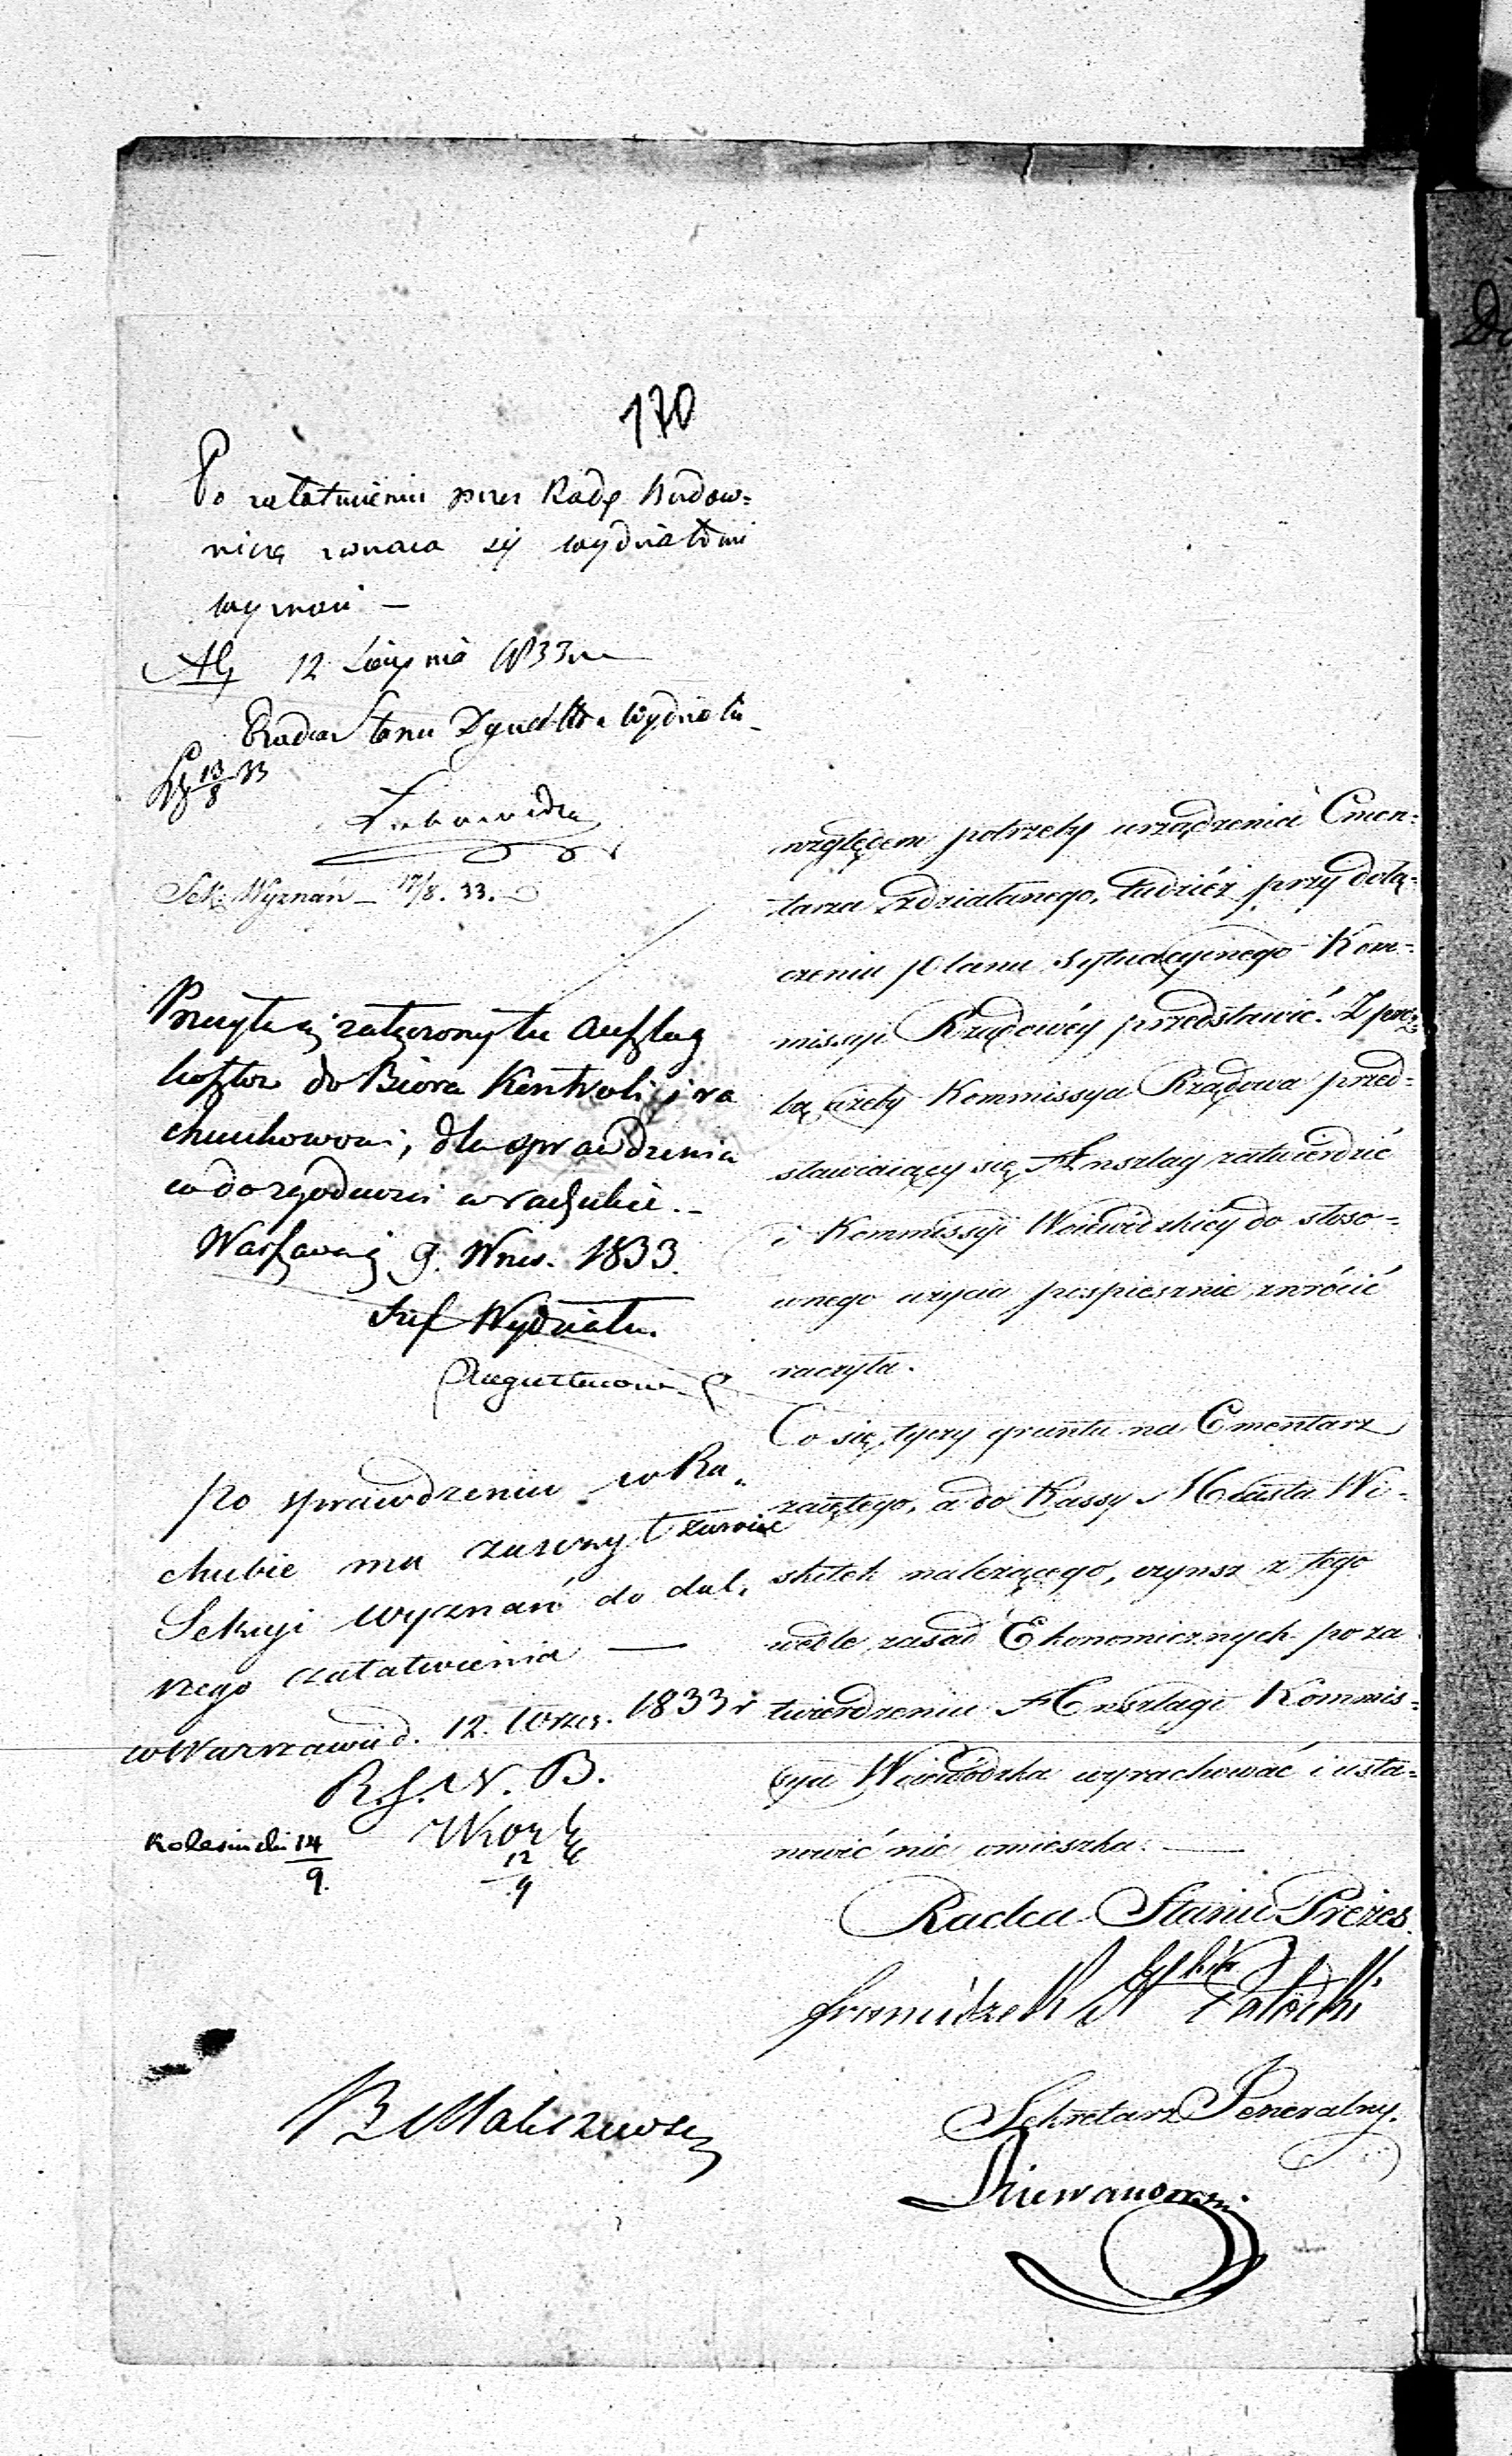 170
Po załatwieniu przez Radę Budow=
niczą zwraca się wydziałowi
wyznań —
12 Sierpnia 1833
Radca Stanu Dyrektor Wydziału
13/8 33
Sek: Wyznań — 17/8. 33.
Przesyła się załączony tu Anszlag
kosztów do Biora Kontroli i ra
chunkowości, dla sprawdzenia
co do zgodności w rachubie. –
Warszawa 9. Wrzes. 1833.
Szef Wydziału.
po sprawdzeniu w Ra=
chubie ma zaszczyt zwrócić
Sekcyi wyznań do dal=
szego załatwienia —
w Warszawie d. 12. Wrzes. 1833 r
12/9
Kolesiński 14/9.
B Maliszewski
względem potrzeby urządzenia Cmen=
tarza zdziałanego, tudzież przy dołą=
czeniu planu sytuacyjnego Kom=
missyi Rządowéy przedstawić. Z proź
bą ażeby Kommissya Rządowa przed=
stawiaiący się Anszlag zatwierdzić
i Kommissyi Woiewódzkiéy do stoso=
wnego użycia pospiesznie zwrócić
raczyła.
Co się tyczy gruntu na Cmentarz
zaiętego, a do Kassy Miasta Wi=
skitek należącego, czynsz z tego
wedle zasad Ekonomicznych po za
twierdzeniu Anszlagu Kommis=
sya Woiewódzka wyrachować i usta=
nowić nie omieszka. —
Radca Stanu Prezes
Potocki
Sekretarz Jeneralny.